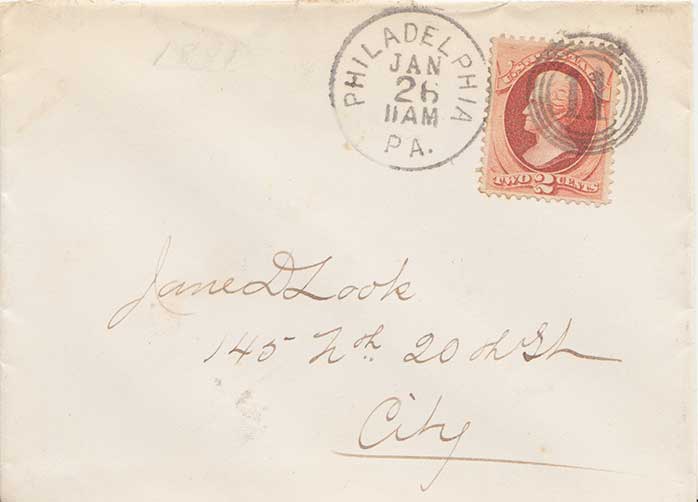 PHILADELPHIA
JAN
26
11AM
PA.
11
TWO 2 CENTS
Jane D Look
145 Nth. 20th St
City